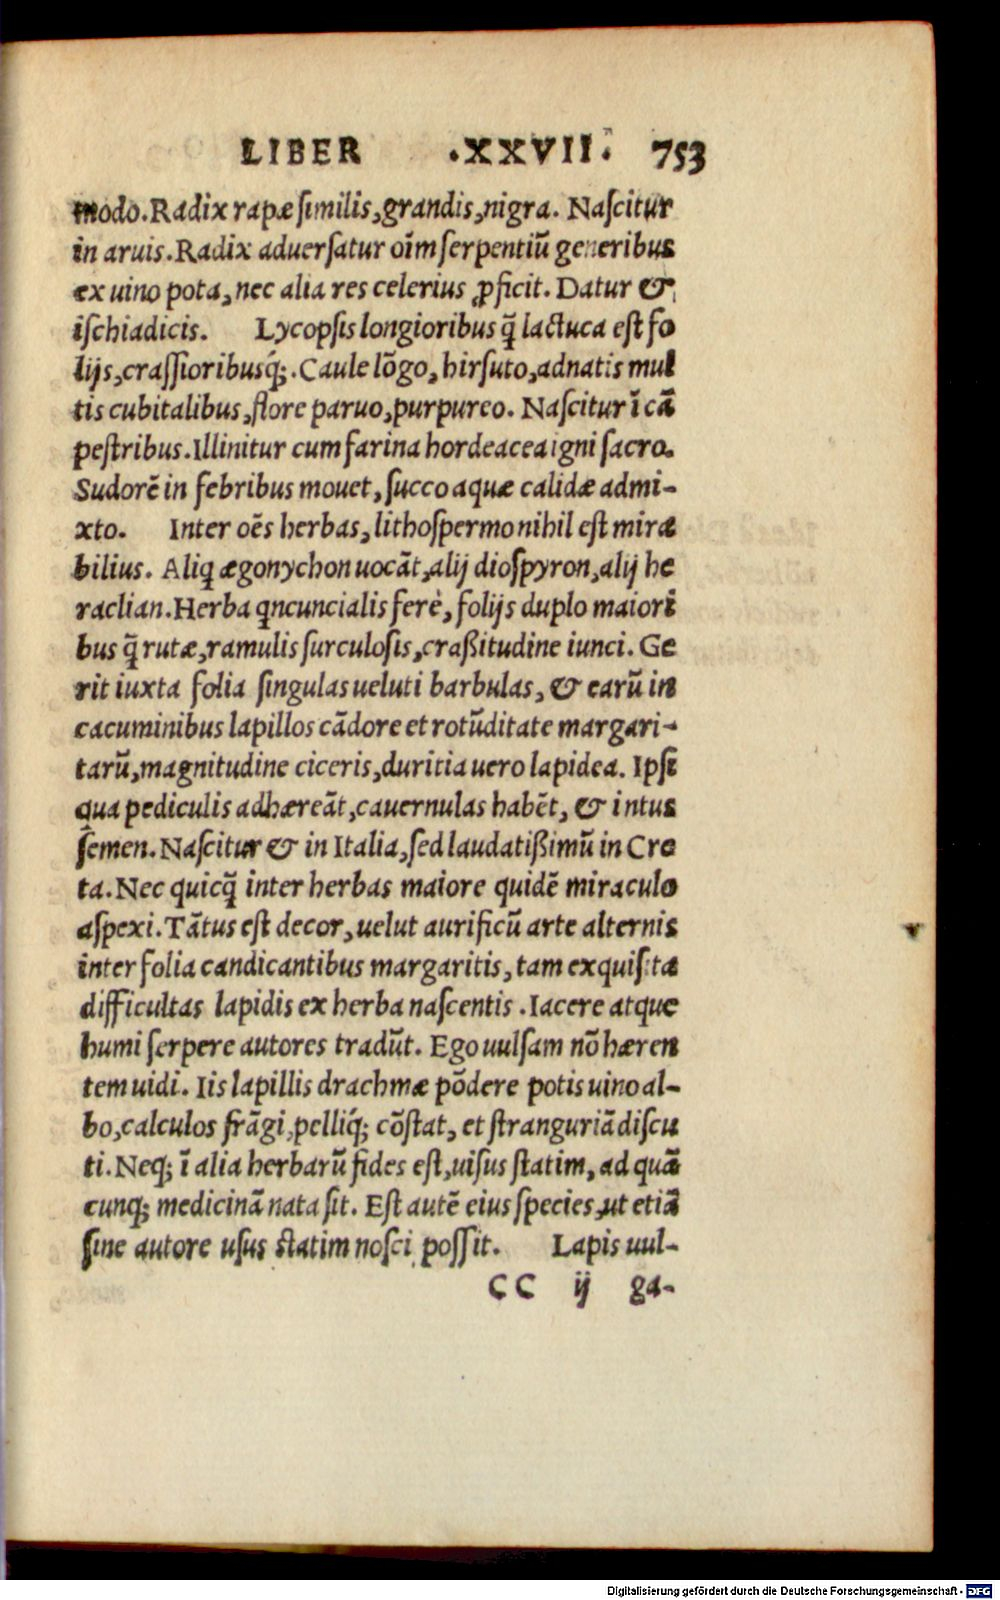 LIBER .XXVII. 753
modo. Radix rapæ ſimilis, grandis, nigra. Naſcitur
in aruis. Radix aduerſatur oĩm ſerpentiũ generibus
ex uino pota, nec alia res celerius ꝓficit. Datur &
iſchiadicis. Lycopſis longioribus q̃ lactuca eſt fo
lijs, craſſioribusq́;. Caule lõgo, hirſuto, adnatis mul
tis cubitalibus, flore paruo, purpureo. Naſcitur ĩ cã
peſtribus. Illinitur cum farina hordeacea igni ſacro.
Sudorẽ in febribus mouet, ſucco aquæ calidæ admi-
xto. Inter oẽs herbas, lithoſpermo nihil eſt mira
bilius. Aliq ægonychon uocãt, alij dioſpyron, alij he
raclian. Herba qncuncialis ferè, folijs duplo maiori
bus q̃ rutæ, ramulis ſurculoſis, craßitudine iunci. Ge
rit iuxta folia ſingulas ueluti barbulas, & earũ in
cacuminibus lapillos cãdore et rotũditate margari-
tarũ, magnitudine ciceris, duritia uero lapidea. Ipſi
qua pediculis adhæreãt, cauernulas habẽt, & intus
ſemen. Naſcitur & in Italia, ſed laudatißimũ in Cre
ta. Nec quicq̃ inter herbas maiore quidẽ miraculo
aſpexi. Tãtus eſt decor, uelut aurificũ arte alternis
inter folia candicantibus margaritis, tam exquiſita
difficultas lapidis ex herba naſcentis. Iacere atque
humi ſerpere autores tradũt. Ego uulſam nõ hæren
tem uidi. Iis lapillis drachmæ põdere potis uino al-
bo, calculos frãgi, pelliq́; cõſtat, et ſtranguriã diſcu
ti. Neq; ĩ alia herbarũ fides eſt, uiſus ſtatim, ad quã
cunq; medicinã nata ſit. Eſt autẽ eius ſpecies, ut etiã
ſine autore uſus ſtatim noſci poſſit. Lapis uul-
CC ij ga-
Digitalisierung gefördert durch die Deutsche Forschungsgemeinschaft - DFG